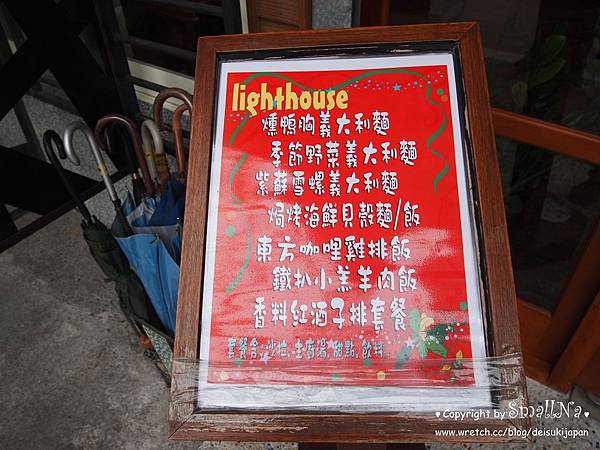 lighthouse
燻鴨胸義大利麵
季節野菜義大利麵
紫蘇雪螺義大利麵
焗烤海鮮貝殼麵/飯
東方咖哩雞排飯
鐵扒小羔羊肉飯
香料紅酒子排套餐
套餐含:沙拉.主廚湯.甜點.飲料
♥Copyright by SmallNa♥
www.wretch.cc/blog/deisukijapan